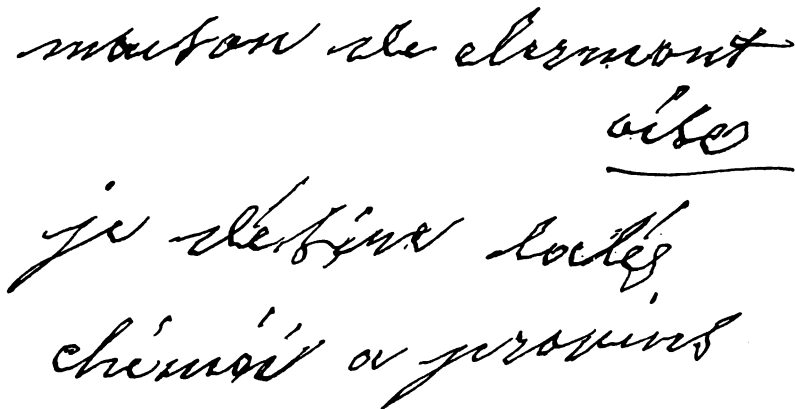 mauson de clermont
oise
je désire salés
chémoi a provins